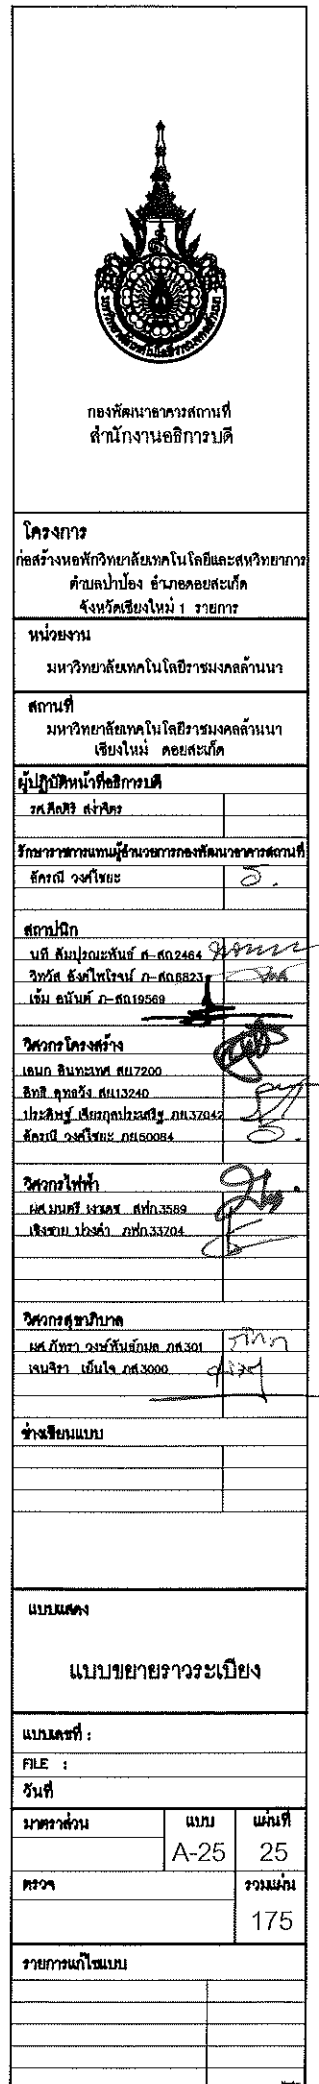 กองพัฒนาอาคารสถานที่
สำนักงานอธิการบดี
โครงการ
ก่อสร้างหอพักวิทยาลัยเทคโนโลยีและสหวิทยาการ
ตำบลป่าป้อง อำเภอดอยสะเก็ด
จังหวัดเชียงใหม่ 1 รายการ
หน่วยงาน
มหาวิทยาลัยเทคโนโลยีราชมงคลล้านนา
สถานที่
มหาวิทยาลัยเทคโนโลยีราชมงคลล้านนา
เชียงใหม่ ดอยสะเก็ด
ผู้ปฏิบัติหน้าที่อธิการบดี
รศ.ศีลศิริ สง่าจิตร
รักษาราชการแทนผู้อำนวยการกองพัฒนาอาคารสถานที่
อัครณี วงศ์ไชยะ
สถาปนิก
นที สัมปุรณะพันธ์ ส-สถ2464
วิทวัส ภ-สถ6823
เข้ม อนันต์ ภ-สถ19569
วิศวกรโครงสร้าง
เอนก อินทะเทศ สย7200
อิทธิ สย13240
ประดิษฐ์ เจียรกุลประเสริฐ ภย37042
อัครณี วงศ์ไชยะ ภย50084
วิศวกรไฟฟ้า
ผศ.มนตรี เงาเดช สฟก.3589
เชิงชาย ปวงคำ ภฟก.33704
วิศวกรสุขาภิบาล
ผศ.ภัทรา วงษ์พันธ์กมล ภส.301
เจนจิรา เย็นใจ ภส.3000
ช่างเขียนแบบ
แบบแสดง
แบบขยายราวระเบียง
แบบเลขที่ :
FILE :
วันที่
มาตราส่วน แบบ แผ่นที่
A-25 25
ตรวจ รวมแผ่น
175
รายการแก้ไขแบบ